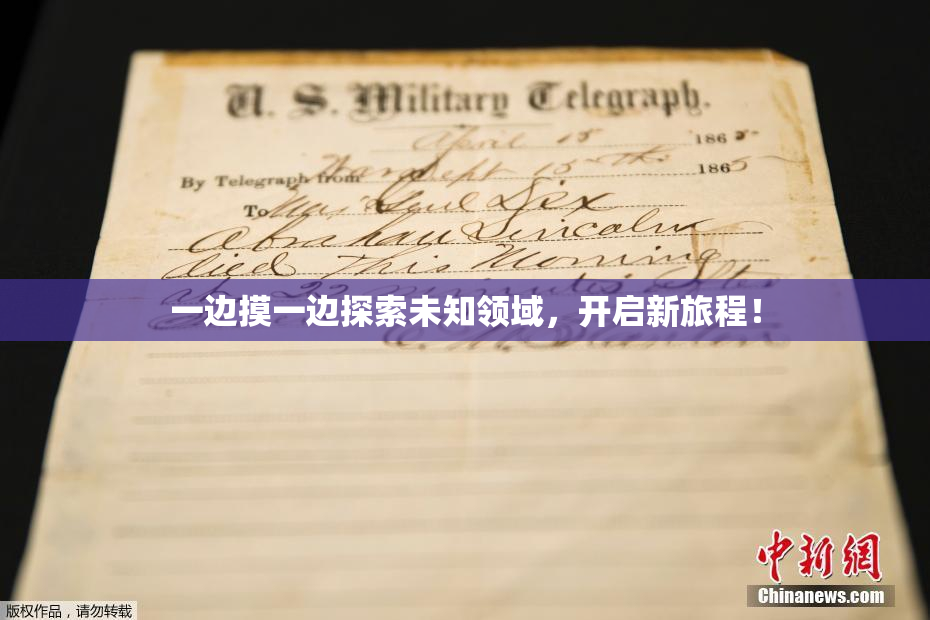 U. S. Military Telegraph.
April 15 1865
By Telegraph from War Dept 15th 1865
To Maj Genl Dix
Abraham Lincoln
died This Morning
at 22 minutes after
一边摸一边探索未知领域，开启新旅程！
中新網
Chinanews.com
版权作品，请勿转载